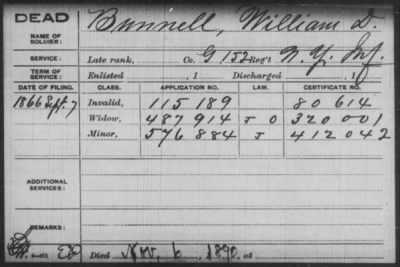 DEAD
NAME OF SOLDIER: Bunnell, William D.
SERVICE: Late rank, Co. G 152 Reg't N.Y. Inf.
TERM OF SERVICE: Enlisted , 1 Discharged , 1
DATE OF FILING. CLASS. APPLICATION NO. LAW. CERTIFICATE NO.
1866 Sept. 7 Invalid, 115 189 80 614
Widow, 487 914 J O 320 001
Minor, 576 884 J 412 042
ADDITIONAL SERVICES:
REMARKS:
Died Nov. 6, 1890, at